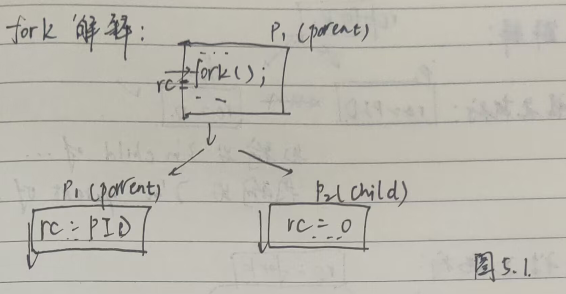 fork 解释:
P1 (parent)
...
rc = fork();
...
P1 (parent)
P2 (child)
rc = PID
rc = 0
图5.1.